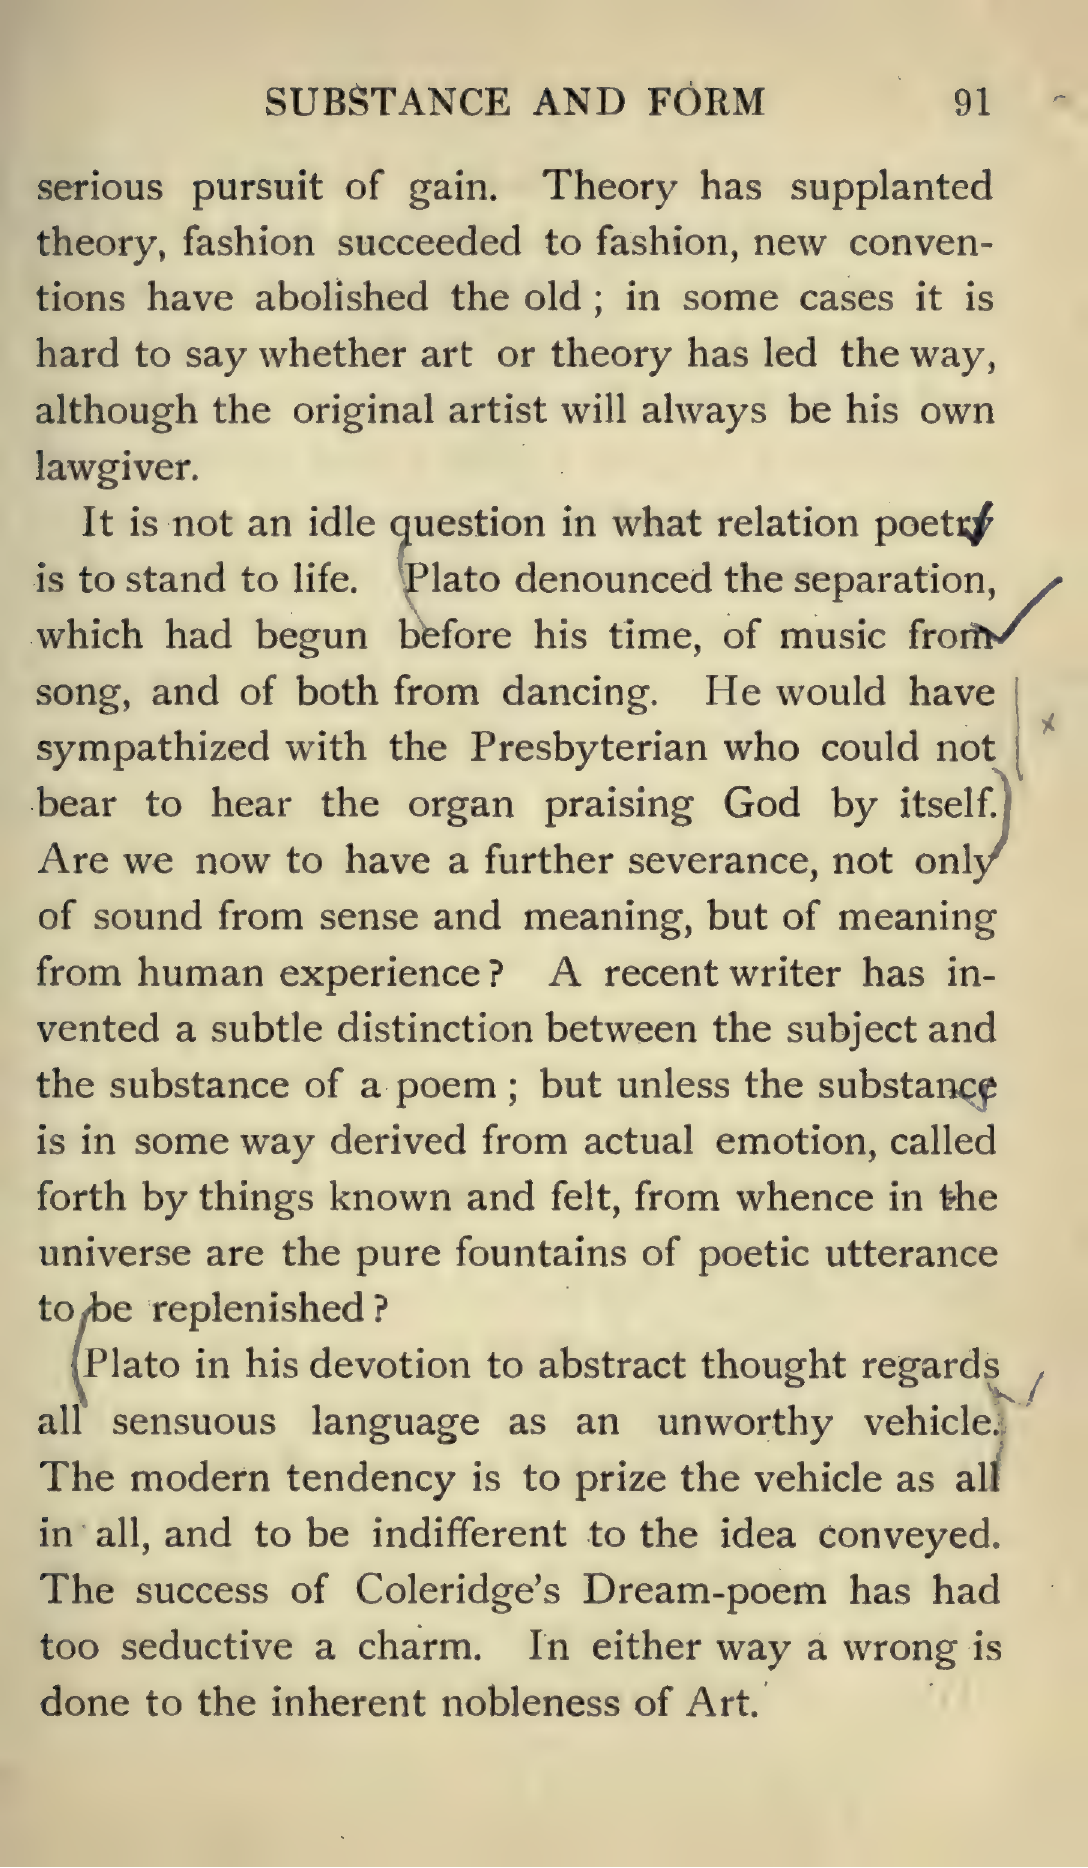 SUBSTANCE AND FORM 91
serious pursuit of gain. Theory has supplanted
theory, fashion succeeded to fashion, new conven-
tions have abolished the old ; in some cases it is
hard to say whether art or theory has led the way,
although the original artist will always be his own
lawgiver.
It is not an idle question in what relation poetry
is to stand to life. Plato denounced the separation,
which had begun before his time, of music from
song, and of both from dancing. He would have
sympathized with the Presbyterian who could not
bear to hear the organ praising God by itself.
Are we now to have a further severance, not only
of sound from sense and meaning, but of meaning
from human experience ? A recent writer has in-
vented a subtle distinction between the subject and
the substance of a poem ; but unless the substance
is in some way derived from actual emotion, called
forth by things known and felt, from whence in the
universe are the pure fountains of poetic utterance
to be replenished ?
Plato in his devotion to abstract thought regards
all sensuous language as an unworthy vehicle.
The modern tendency is to prize the vehicle as all
in all, and to be indifferent to the idea conveyed.
The success of Coleridge's Dream-poem has had
too seductive a charm. In either way a wrong is
done to the inherent nobleness of Art.